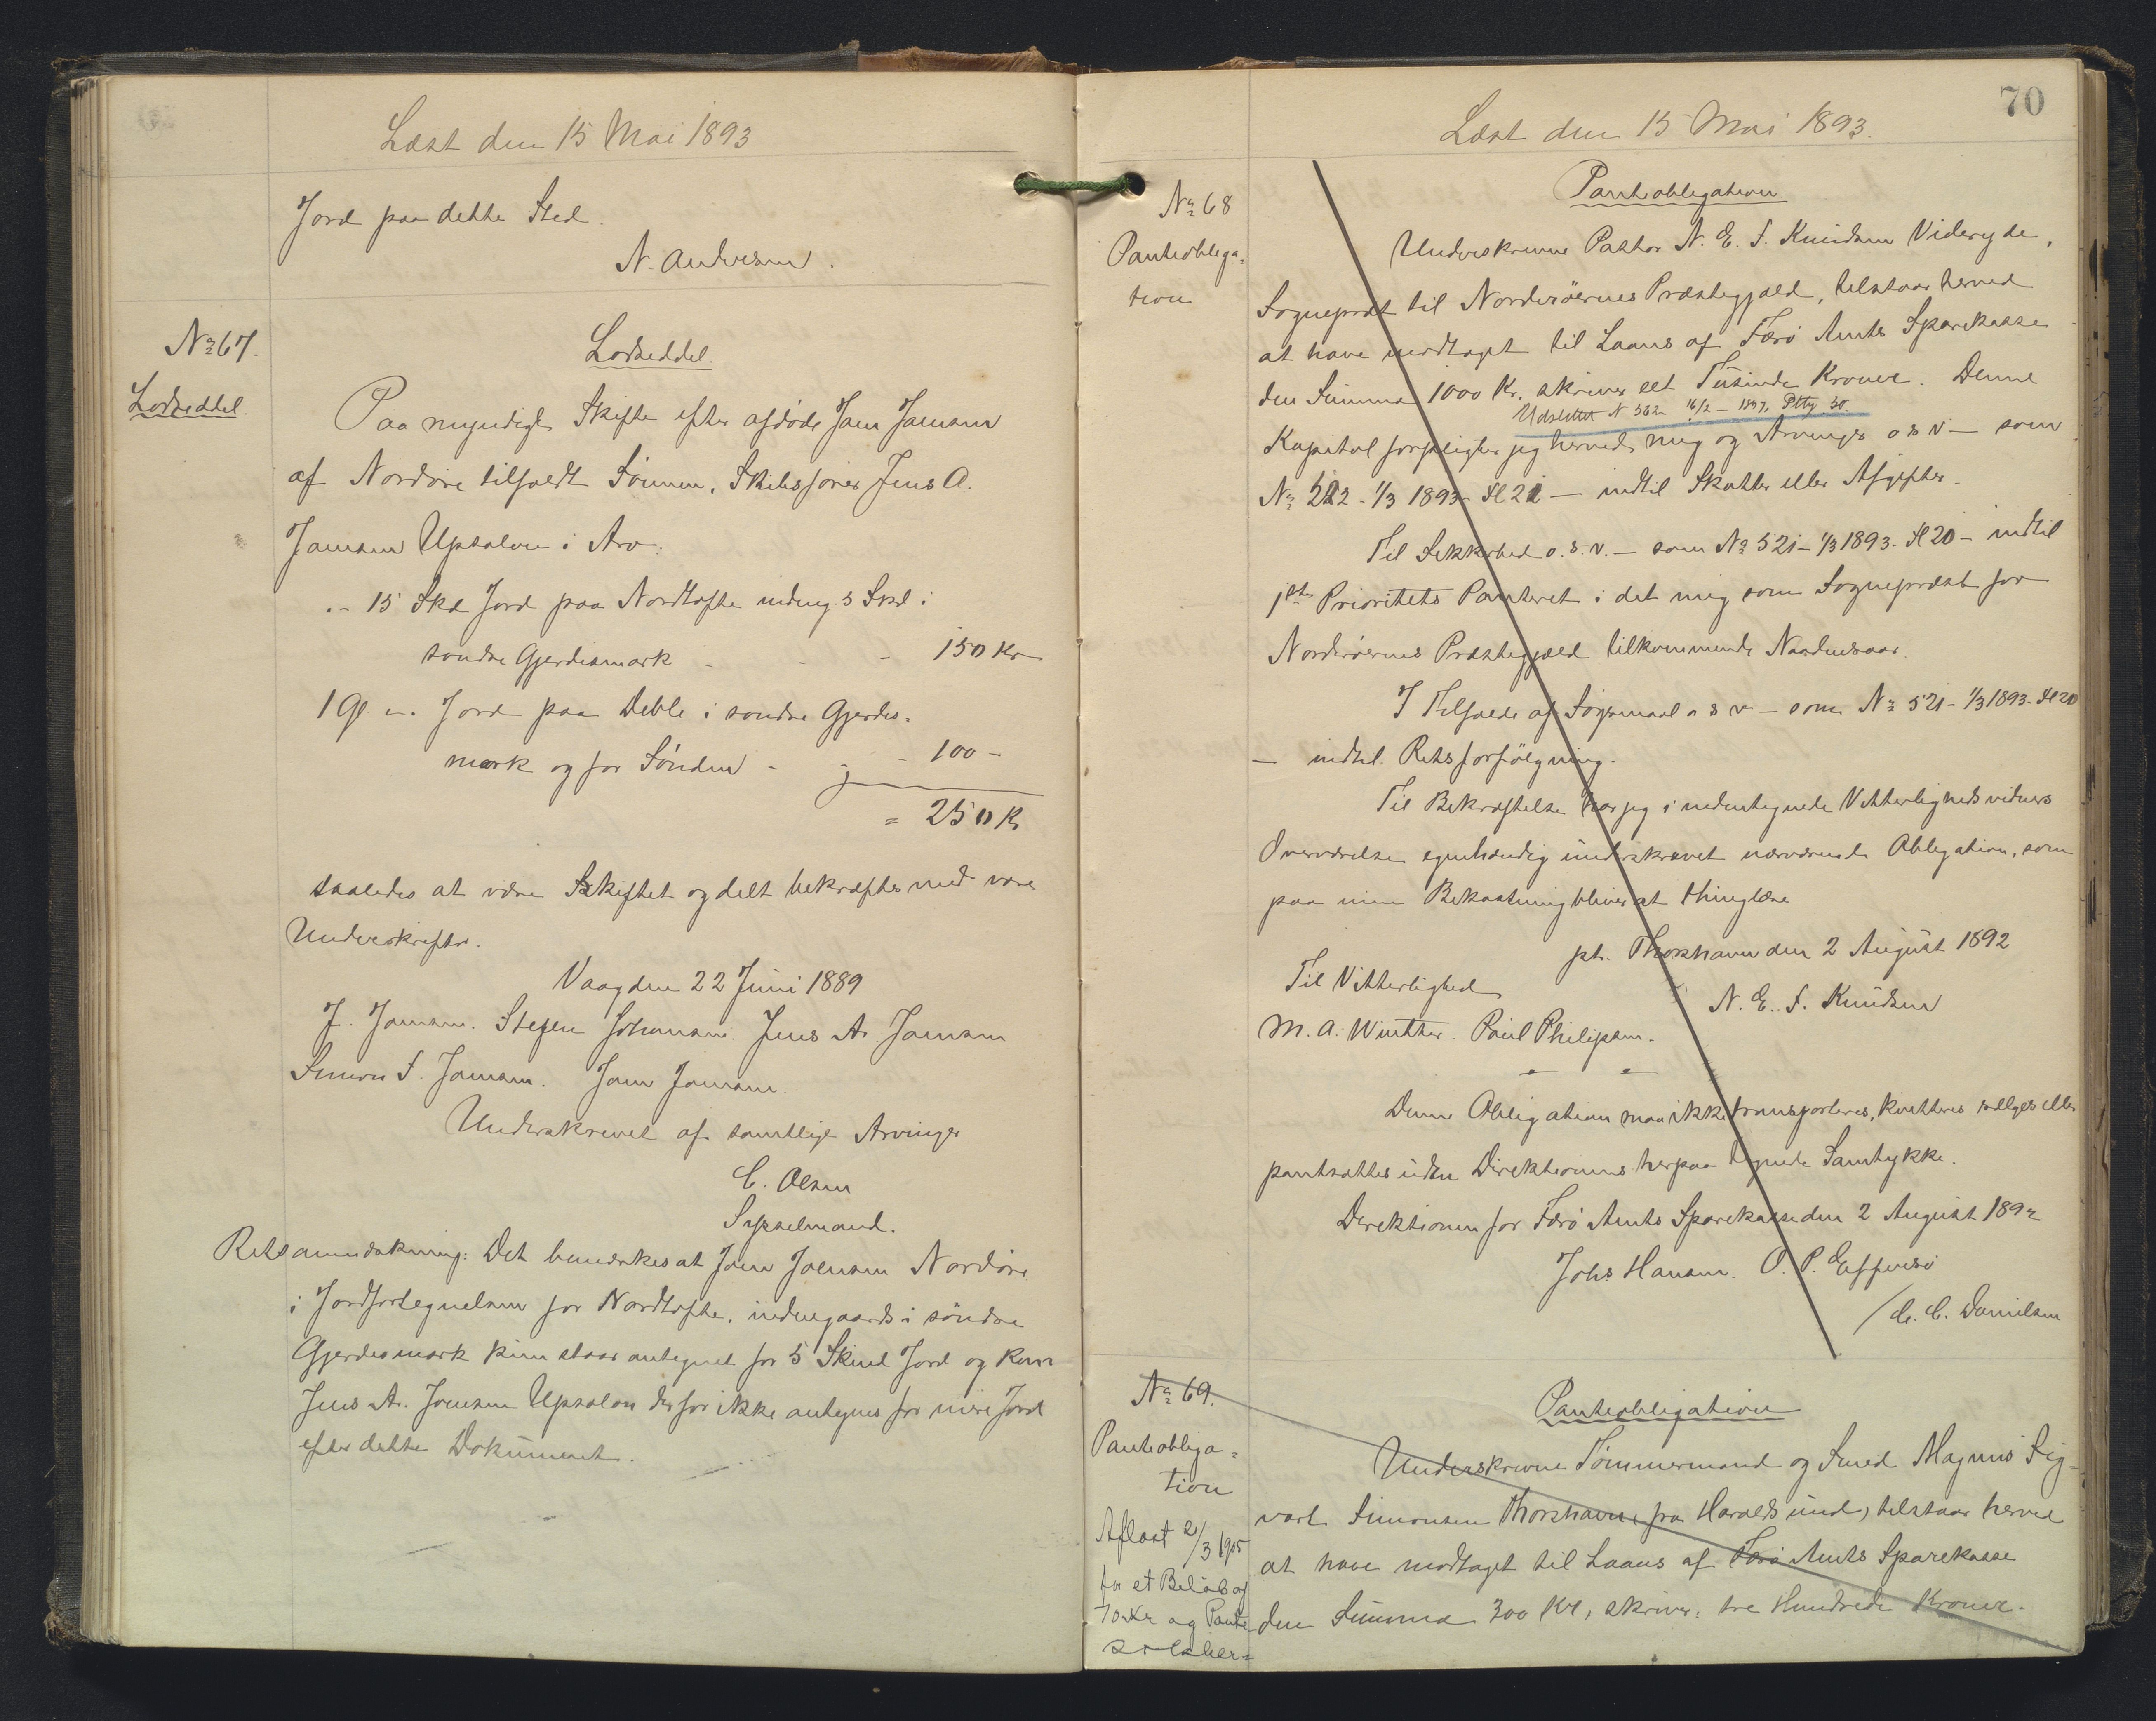 Læst den 15 Mai 1893
Jord paa dette Sted.
N. Andresen.
№ 67.
Lodseddel.
Lodseddel.
Paa myndigt Skifte efter afdøde Joen Joensen
af Nordöre tilfaldt Sönnen, Skibsförer Jens A.
Joensen Upsalon i Arv:
15 Skd Jord paa Nordtofte indeng. 5 Skd i
söndre Gjerdesmark - - - 150 Kr
1 Gl -. Jord paa Deble i söndre Gjerdes-
mark og for Sönden - - - 100 -
= 250 Kr
saaledes at være Skiftet og delt bekræftes med vore
Underskrifter.
Vaag den 22 Juni 1889
J. Joensen. Steffen Johansen. Jens A. Joensen
Simon F. Joensen. Joen Joensen.
Underskrevet af samtlige Arvinger
C. Olsen
Sysselmand.
Retsanmærkning: Det bemærkes at Joen Joensen Nordöre
i Jordfortegnelsen for Nordtofte, indengaards i söndre
Gjerdesmark kun staar antegnet for 5 Skind Jord og kan
Jens A. Joensen Upsalon derfor ikke antegnes for mere Jord
efter dette Dokument.
70
Læst den 15 Mai 1893.
№ 68
Panteobliga-
tion
Panteobligation
Underskrevne Pastor N. E. F. Knudsen Viderejde,
Sognepræst til Norderöernes Præstegjæld, tilstaar herved
at have modtaget til Laans af Færö Amts Sparekasse
den Summa 1000 Kr. skriver eet Tusinde Kroner. Denne
Udslettet N 562 16/2 - 1897, Pttg. 30.
Kapital forpligter jeg herved mig og Arvinger o s v - som
№ 522 - 1/3 1893 - Fl 21 - indtil Skatter eller Afgifter.
Til Sikkerhed o. s. v. - som № 521 - 1/3 1893. Fl 20 - indtil
1ste Prioritets Panteret i det mig som Sognepræst for
Norderöernes Præstegjæld tilkommende Naadensaar.
I Tilfælde af Sögsmaal o s v - som № 521 - 1/3 1893. Fl 20
- indtil Retsforfölgning.
Til Bekræftelse har jeg i nedentegnede Vitterlighedsvidners
Overværelse egenhændig underskrevet nærværende Obligation, som
paa min Bekostning bliver at thinglæse
pt. Thorshavn den 2 August 1892
Til Vitterlighed
N. E. F. Knudsen
M. A. Winther. Poul Philipsen.
Denne Obligation maa ikke transporteres, kvitteres sælges eller
pantsættes uden Direktionens herpaa tegnede Samtykke.
Direktionen for Færö Amts Sparekasse den 2 August 1892
Johs. Hansen. O. P. Effersö
/ C. C. Danielsen
№ 69.
Panteobliga-
tion
Aflæst 2/3 1905
for et Belöb af
70 Kr og Pante
Panteobligation
Underskrevne Tömmermand og Smed Magnus Sig-
vart Simonsen Thorshavn, fra Haraldssund, tilstaar herved
at have modtaget til Laans af Færö Amts Sparekasse
den Summa 300 Kr, skriver: tre Hundrede Kroner.